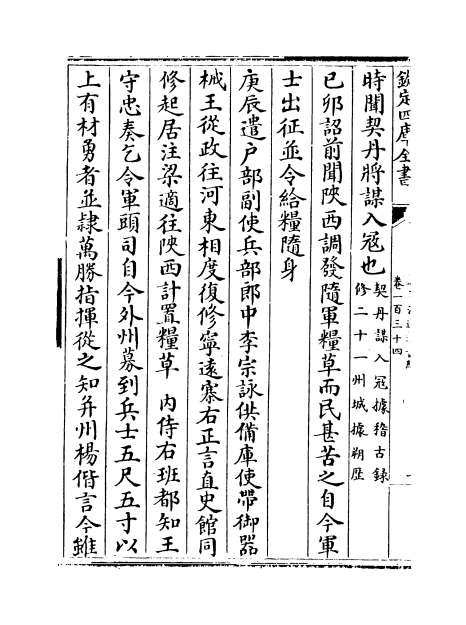 欽定四庫全書
卷一百三十四
時聞契丹將謀入冦也契丹謀入冦據稽古錄
修二十一州城據朔歴
已夘詔前聞陜西調發隨軍糧草而民甚苦之自今軍
士出征並令給糧隨身
庚辰遣户部副使兵部郎中李宗詠供備庫使帶御器
械王從政往河東相度復修寧遠寨右正言直史館同
修起居注梁適往陜西計置糧草 内侍右班都知王
守忠奏乞令軍頭司自今外州募到兵士五尺五寸以
上有材勇者並隸萬勝指揮從之知并州楊偕言今雖